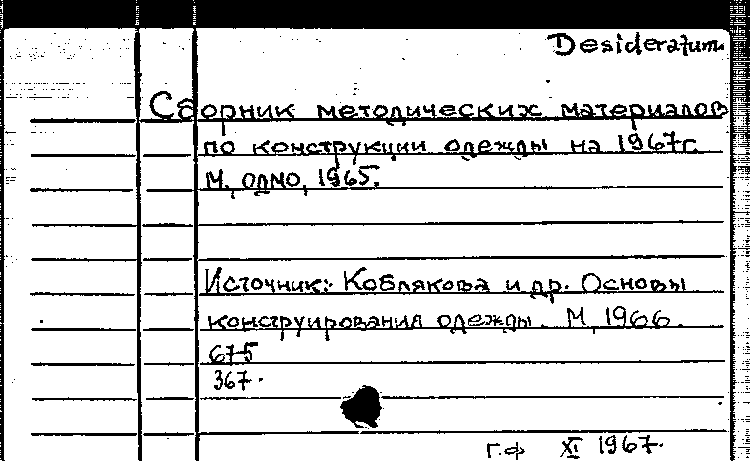 Desideratum.
Сборник методических материалов
по конструкции одежды на 1967г.
М., ОДМО, 1965.
Источник: Коблякова и др. Основы
конструирования одежды. М, 1966.
675
367.
г.ф XI 1967.